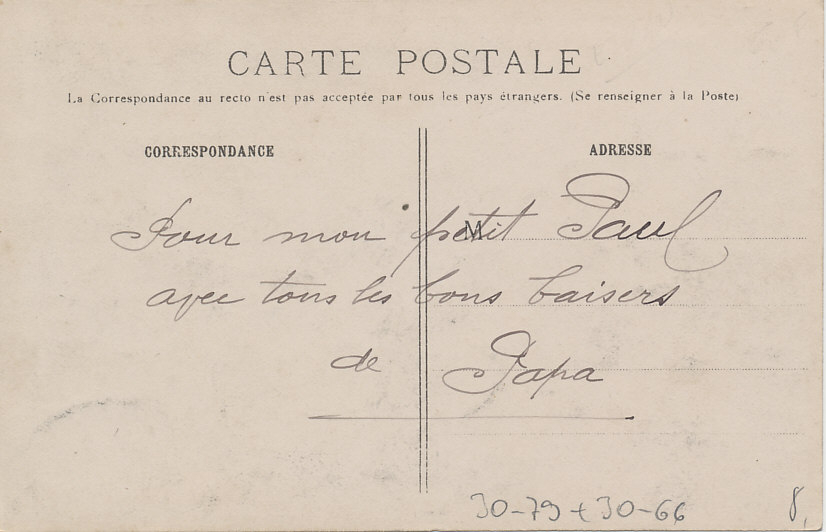 CARTE POSTALE
La Correspondance au recto n'est pas acceptée par tous les pays étrangers. (Se renseigner à la Poste)
CORRESPONDANCE
ADRESSE
M
Pour mon petit Paul
avec tous les bons baisers
de Papa
30-79 + 30-66
8,